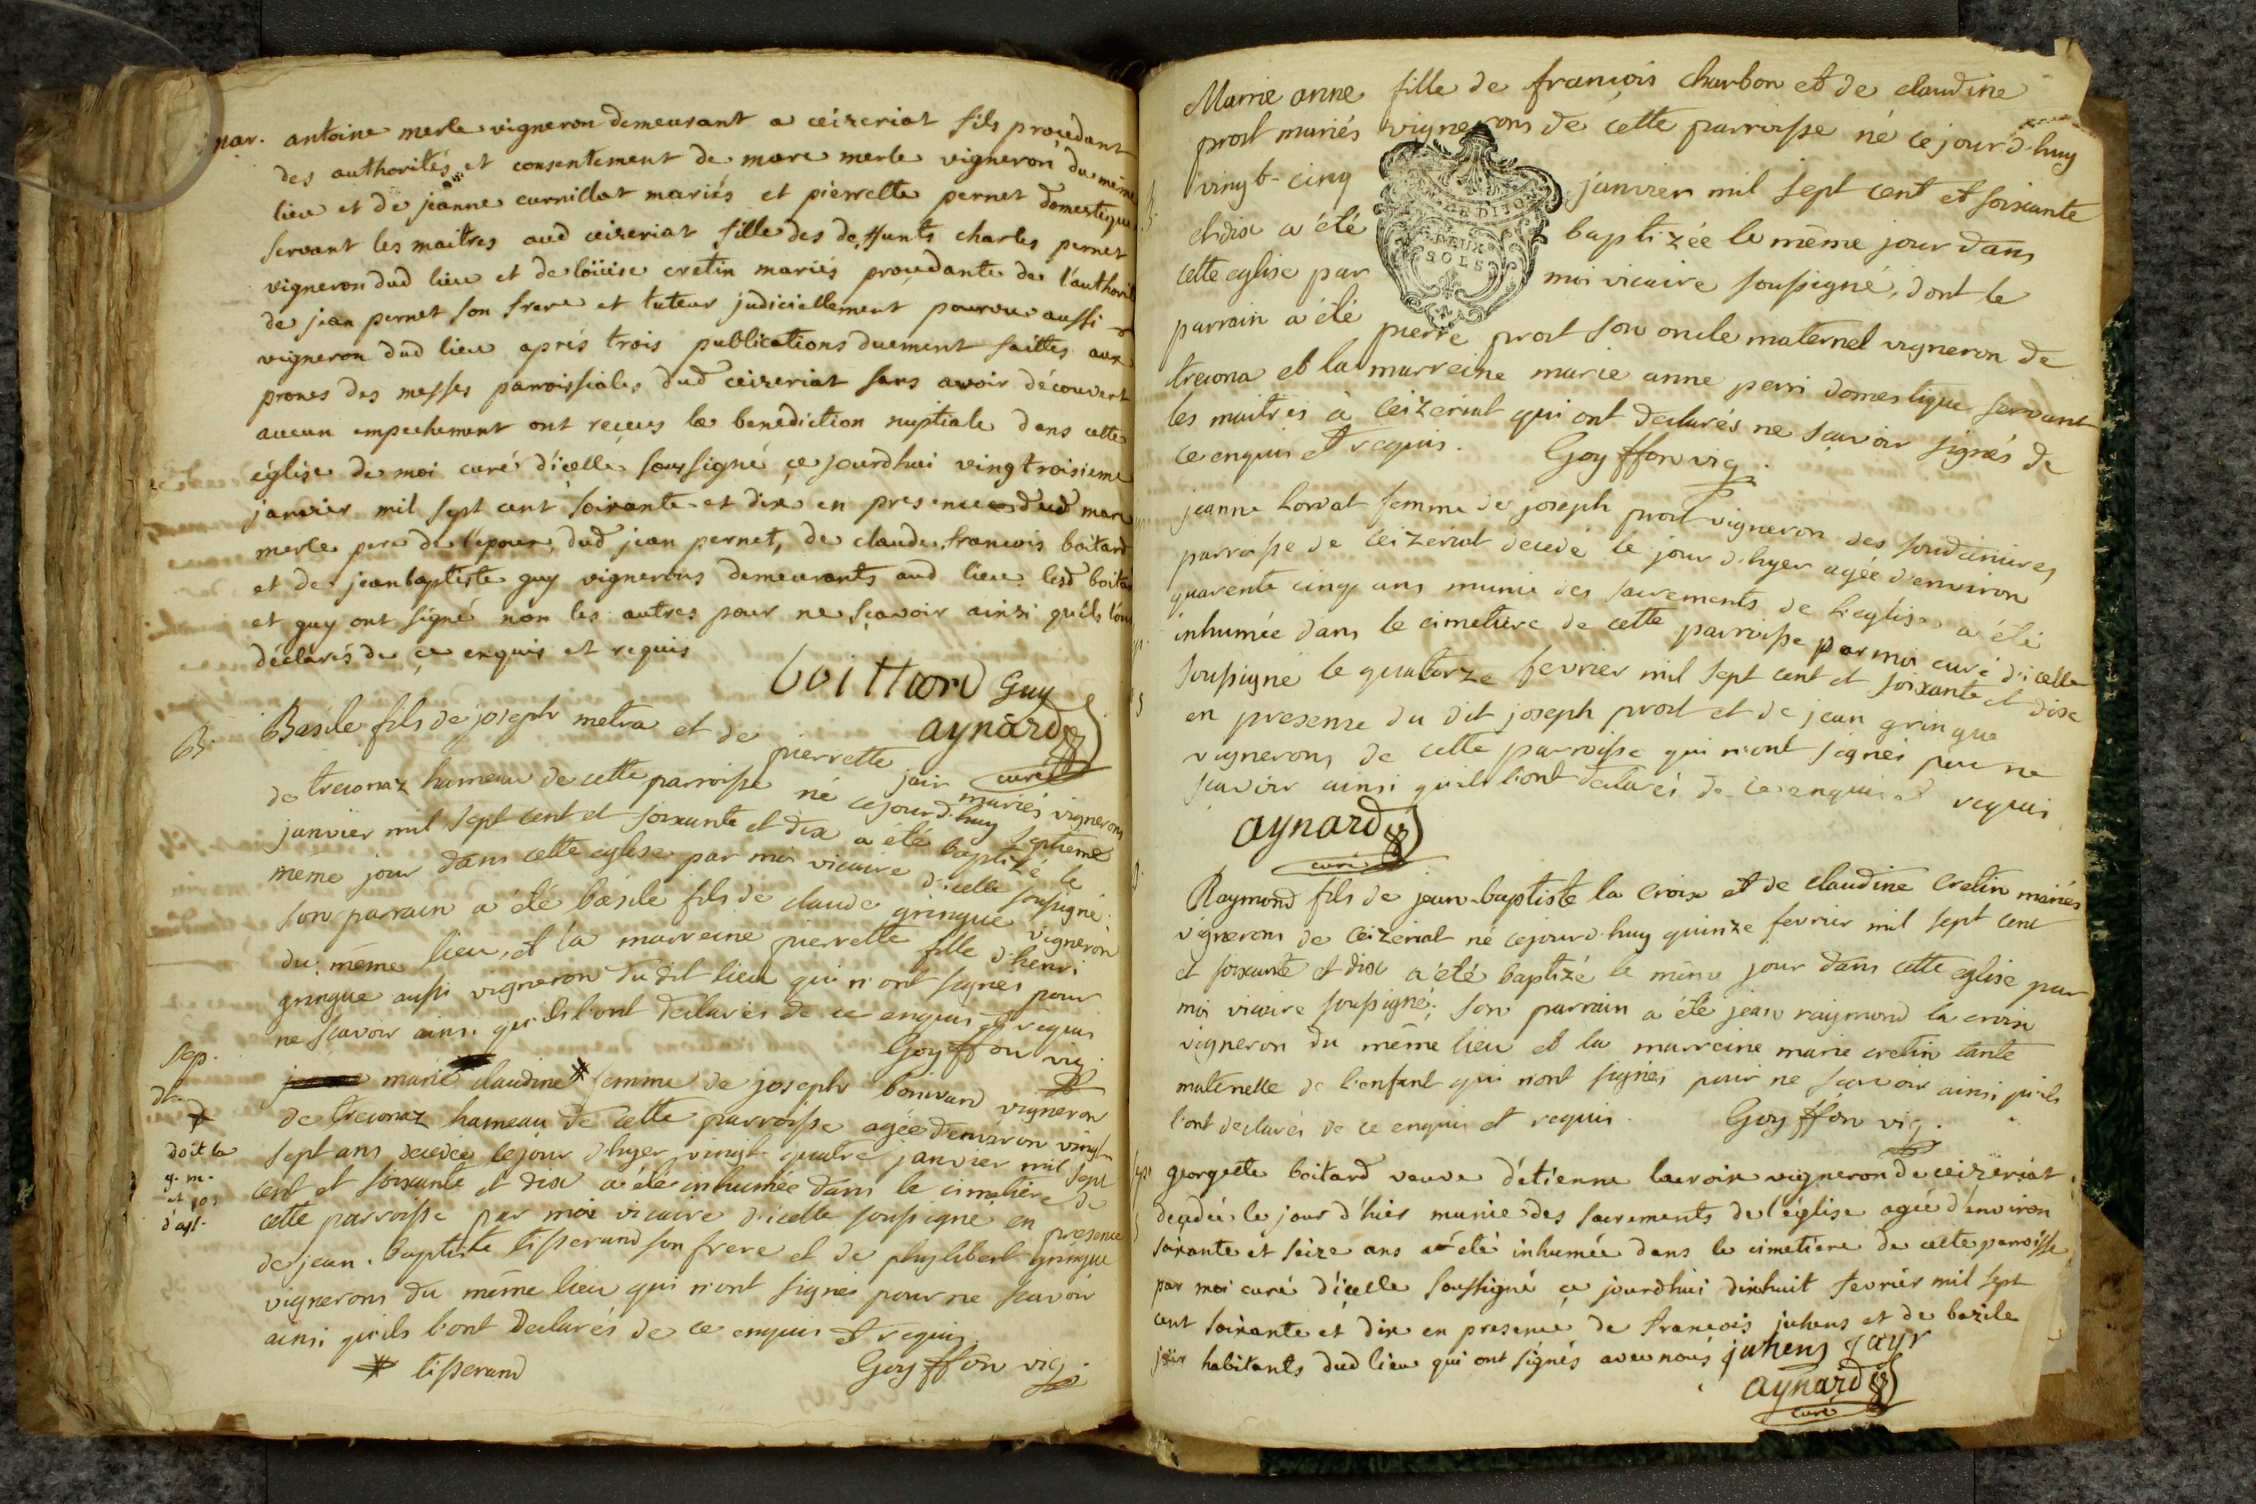 mar. antoine merle vigneron demeurant a ceizeriat fils procedant
des authorités et consentement de marc merle vigneron du même
lieu et de jeanne curnillat mariés et pierrette pernet domestique
servant les maitres aud ceizeriat fille des deffunts charles pernet
vigneron dud lieu et de loüise cretin mariés procedante de l'authorit
de jean pernet son frere et tuteur judiciellement pourvu aussi
vigneron dud lieu aprés trois publications duement faittes aux
prones des messes parroissiales dud ceizeriat sans avoir découvert
aucun empechement ont reçeus la benediction nuptiale dans cette
église de moi curé d'icelle soussigné ce jourdhui vingtroisieme
janvier mil sept cent soixante et dix en presence dud marc
merle pere de l'epoux, dud jean pernet, de claude francois boitard
et de jean baptiste guy vignerons demeurants aud lieu lesd boita
et guy ont signé non les autres pour ne sçavoir ainsi qu'ils l'on
déclarés de ce enquis et requis
boittard Guy
aynard
curé
B. Basile fils de joseph metra et de pierrette jair mariés vignerons
de treconaz hameau de cette parroisse né cejourd'huy septieme
janvier mil sept cent et soixante et dix a été baptizé le
même jour dans cette eglise par moi vicaire d'icelle soussigné.
son parrain a été basile fils de claude gringue vigneron
du même lieu, et la marreine pierrette fille d'henri
gringue aussi vigneron du dit lieu qui n'ont signés pour
ne scavoir ainsi qu'ils l'ont declarés de ce enquis et requis
Goyffon vig.
sep.
marie claudine femme de joseph bonivard vigneron
de treconaz hameau de cette parroisse agée denviron vingt
doit la
g. m.
et jos
d'apt.
sept ans decedée le jour d'hyer vingt quatre janvier mil sept
cent et soixante et dix a été inhumée dans le cimetière de
cette parroisse par moi vicaire d'icelle soussigné en presence
de jean-baptiste tisserand son frere et de phylibert gringue
vignerons du même lieu qui n'ont signés pour ne scavoir
ainsi qu'ils l'ont declarés de ce enquis et requis.
tisserand Goyffon vig.
Marie anne fille de françois charbon et de claudine
prost mariés vignerons de cette parroisse né ce jour d'huy
vingt-cinq janvier mil sept cent et soixante
et dix a été baptizée le même jour dans
cette eglise par moi vicaire soussigné, dont le
parrain a été pierre prost son oncle maternel vigneron de
DE DIJON
DEUX
SOLS
trecona et la marreine marie anne perri domestique servant
les maitres à Ceizeriat qui ont declarés ne scavoir signés de
ce enquis et requis. Goyffon vig.
jeanne femme de joseph prost vigneron des
parroisse de Ceizeriat decedé le jour d'hyer agée d'environ
quarente cinq ans munie des sacrements de l'eglise, a été
inhumée dans le cimetiere de cette parroisse par moi curé d'icelle
soussigné le quatorze fevrier mil sept cent et soixante et dix
en presense du dit joseph prost et de jean gringue
vignerons de cette parroisse qui n'ont signés pour ne
scavoir ainsi qu'ils l'ont declarés de ce enquis et requis
aynard
curé
Raymond fils de jean-baptiste la Croix et de claudine Cretin mariés
vignerons de Ceizeriat né cejourd'huy quinze fevrier mil sept cent
et soixante et dix a été baptizé le même jour dans cette eglise par
moi vicaire soussigné; son parrain a été jean raymond la croix
vigneron du même lieu et la marreine marie cretin tante
maternelle de l'enfant qui n'ont signés pour ne scavoir ainsi qu'ils
l'ont declarés de ce enquis et requis. Goyffon vig.
georgette boitard veuve d'étienne lacroix vigneron de ceizeriat
decedée le jour d'hier munie des sacrements de l'église agée d'environ
soixante et seize ans a été inhumée dans le cimetiere de cette parroisse
par moi curé d'icelle soussigné ce jourdhui dixhuit fevrier mil sept
cent soixante et dix en presence de francois juhens et de bazile
jaïr habitants dud lieu qui ont signés avec nous juhens jayr
aynard
curé